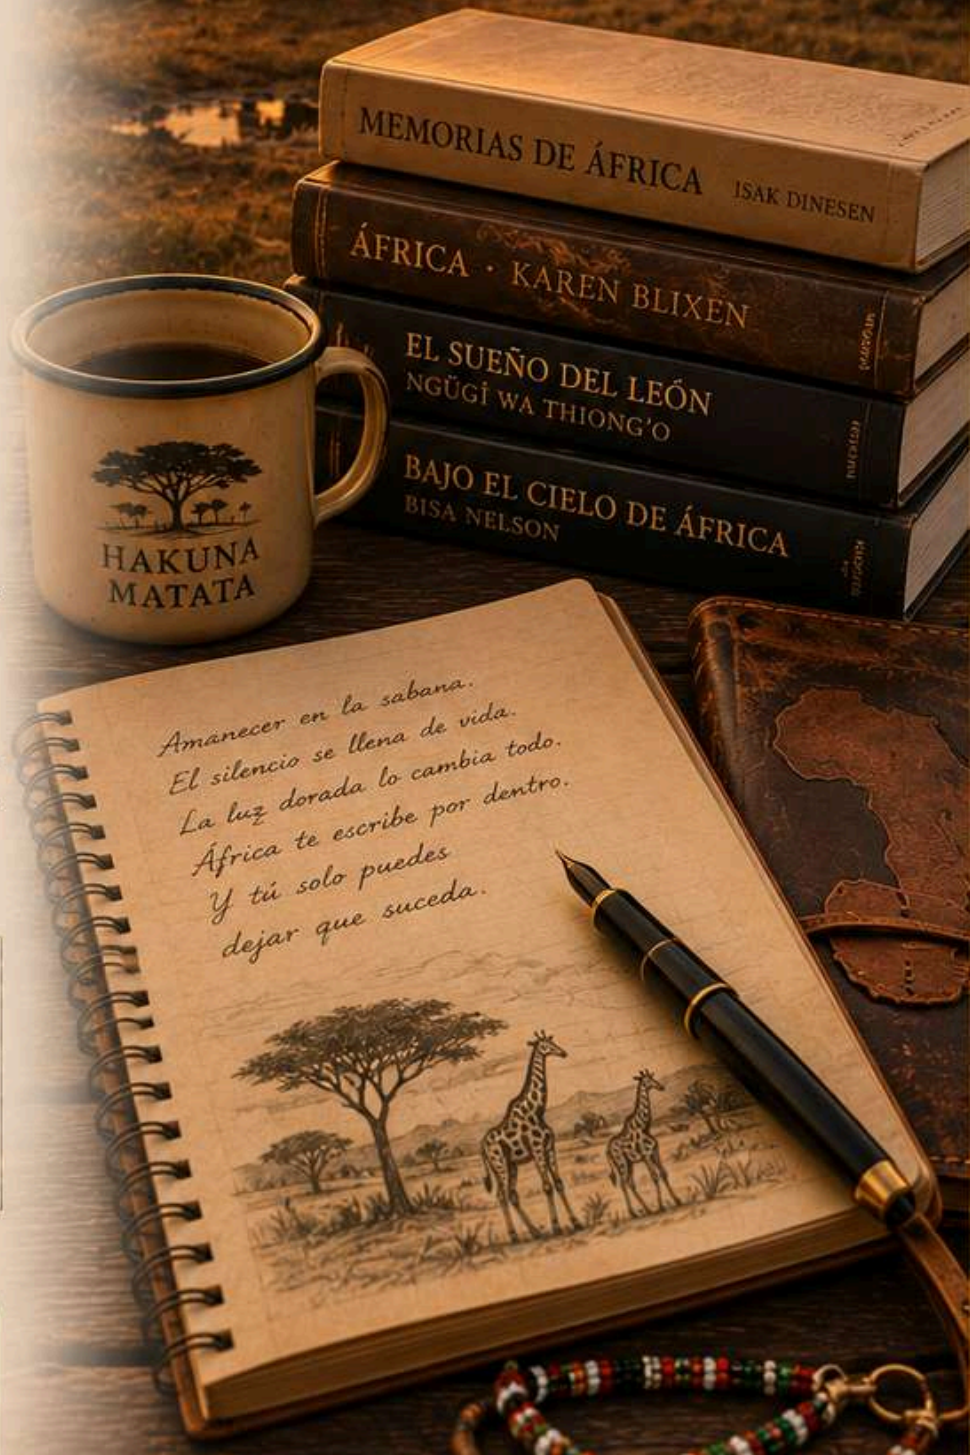 MEMORIAS DE ÁFRICA ISAK DINESEN
ÁFRICA · KAREN BLIXEN
EL SUEÑO DEL LEÓN
NGŨGĨ WA THIONG'O
BAJO EL CIELO DE ÁFRICA
BISA NELSON
HAKUNA
MATATA
Amanecer en la sabana.
El silencio se llena de vida.
La luz dorada lo cambia todo.
África te escribe por dentro.
Y tú solo puedes
dejar que suceda.